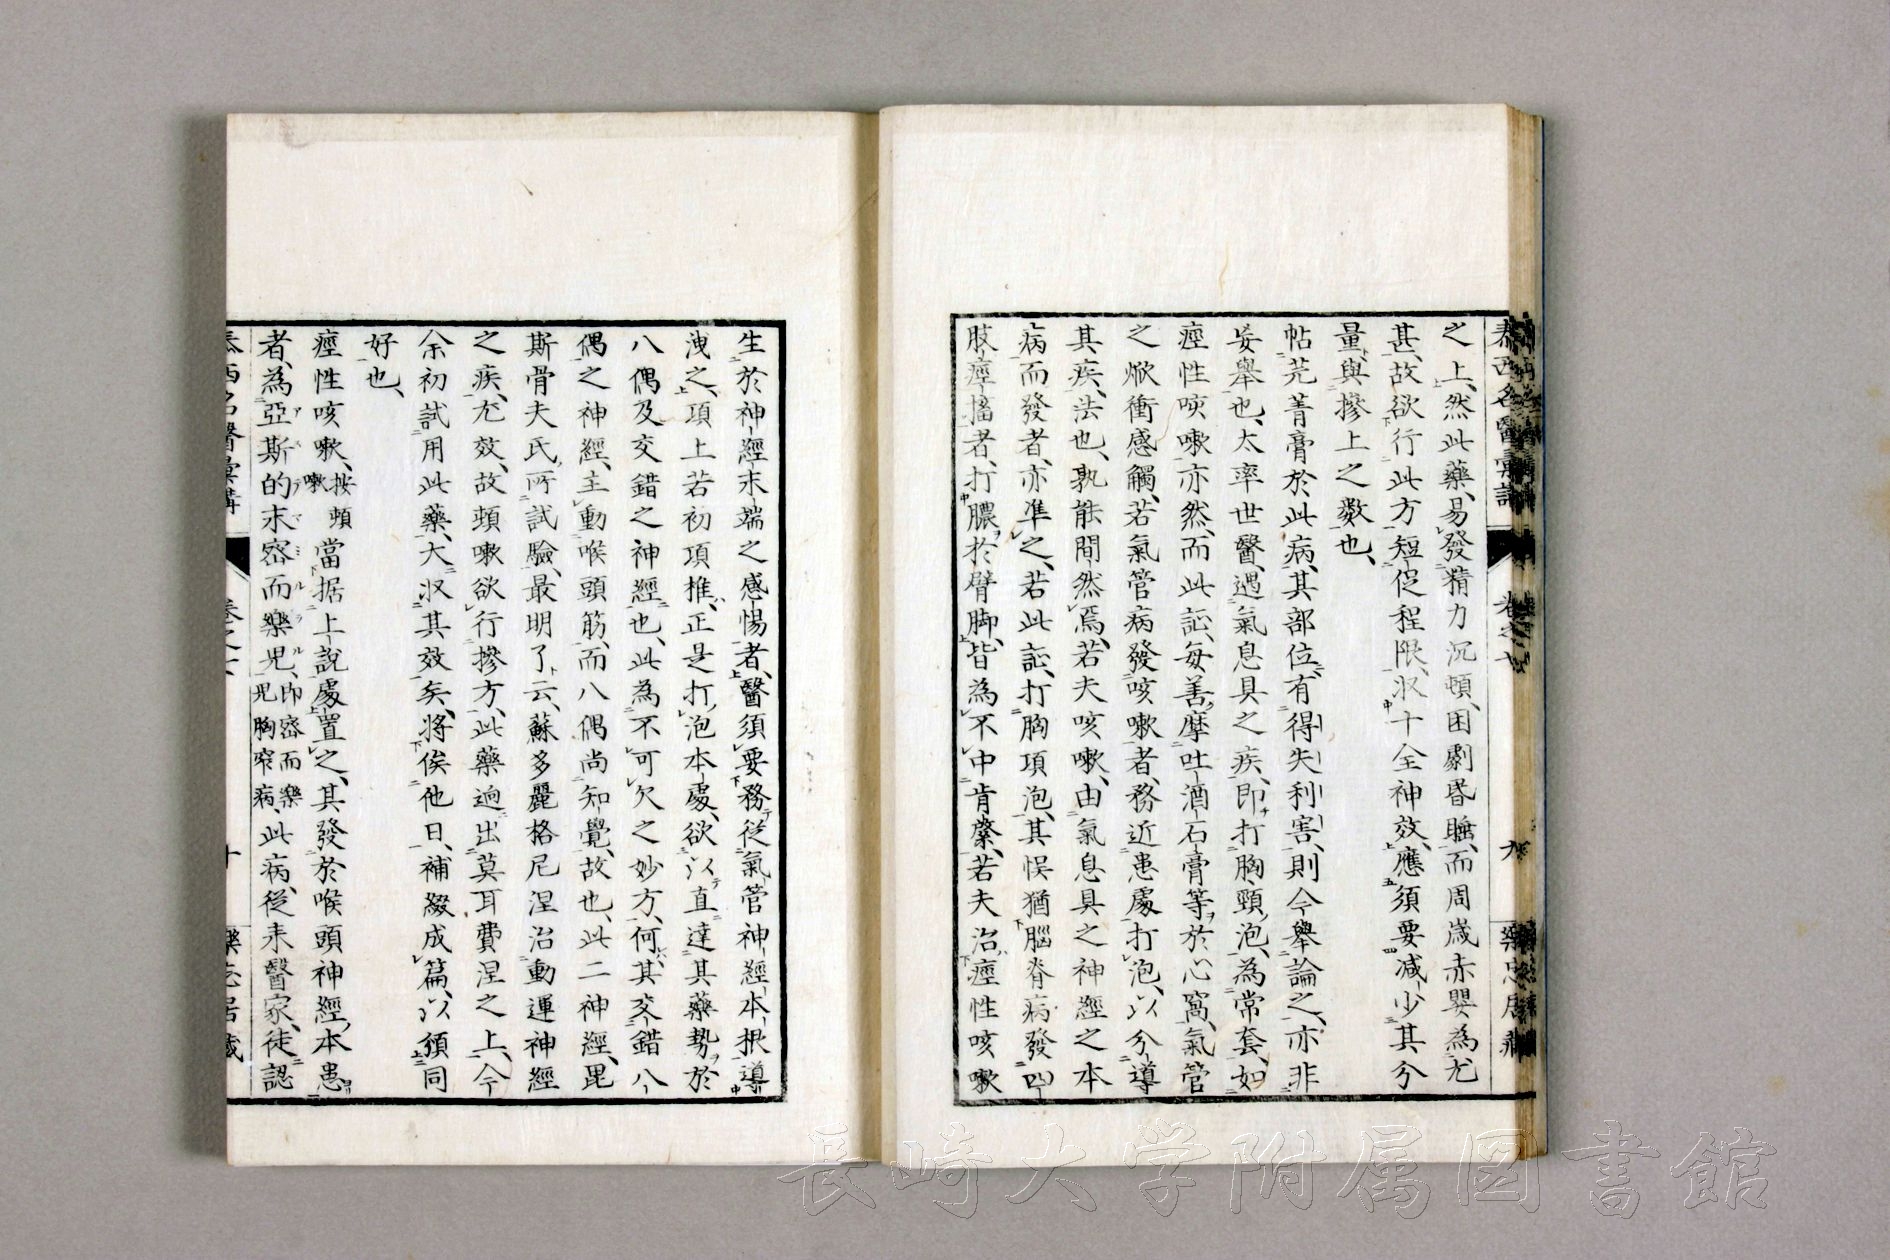 泰西名醫彙講
卷之七
九
樂志居藏
之上、然此藥、易發精力沉頓、困劇昏睡、而周歲赤嬰為尤
甚、故欲行此方、短促程限、収十全神效、應須要減少其分
量、與摻上之數也、
帖芫菁膏於此病、其部位、有得失利害、則今舉論之、亦非
妄舉也、太率世醫、遇氣息具之疾、即打胸頸泡、為常套、如
痙性咳嗽亦然、而此証、每善摩吐酒石膏等於心窩、氣管
之焮衝感觸、若氣管病發咳嗽者、務近患處打泡、以兮導
其疾、法也、孰能間然焉、若夫咳嗽、由氣息具之神經之本
病而發者、亦準之、若此証、打胸項泡、其悮猶腦脊病發四
肢痙搐者、打膿於臂脚、皆為不中肯綮、若夫治痙性咳嗽
生於神經末端之感惕者、醫須要務從氣管神經本根導
洩之、項上若初項椎、正是打泡本處、欲以直達其藥勢於
八偶及交錯之神經也、此為不可欠之妙方、何其交錯八
偶之神經、主動喉頭筋、而八偶尚知覺、故也、此二神經、毘
斯骨夫氏、所試驗、最明了云、蘇多麗格尼涅治動運神經
之疾、尤效、故頓嗽欲行摻方、此藥逈出莫耳費涅之上、今
余初試用此藥、大収其效矣、將俟他日、補綴成篇、以頒同
好也、
痙性咳嗽、按頓嗽當据上說處置之、其發於喉頭神經本患
者、為亞斯的末密而樂児、即密而樂児胸窄病、此病、從来醫家、徒認
アステマミルラル
泰西名醫彙講
卷之七
十
樂志居藏
長崎大学附属図書館